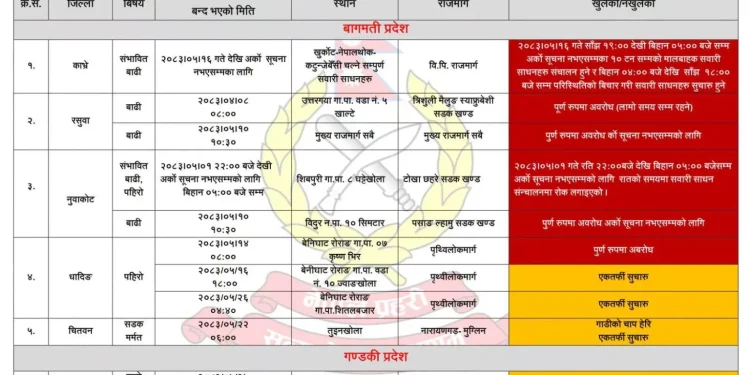 क्र.स. जिल्ला बिषय बन्द भएको मिति स्थान राजमार्ग खुलेको/नखुलेको
बागमती प्रदेश
१. काभ्रे संभावित बाढी २०८३।०५।१६ गते देखि अर्को सूचना नभएसम्मका लागि खुर्कोट-नेपालथोक-कटुन्जेबेँसी चल्ने सम्पुर्ण सवारी साधनहरु वि.पि. राजमार्ग २०८३।०५।१६ गते साँझ १९:०० देखी बिहान ०५:०० बजे सम्म
अर्को सूचना नभएसम्मका १० टन सम्मको मालबाहक सवारी
साधनहरु संचालन हुने र बिहान ०४:०० बजे देखि साँझ १८:००
बजे सम्म परिस्थितिको बिचार गरी सवारी साधनहरु सुचारु हुने
२. रसुवा
बाढी २०८३।०४।०८ ०८:०० उत्तरगया गा.पा. वडा नं. ५ खाल्टे त्रिशुली मैलुङ स्याफ्रुबेशी सडक खण्ड पूर्ण रुपमा अवरोध (लामो समय सम्म रहने)
बाढी २०८३।०५।१० १०:३० मुख्य राजमार्ग सबै मुख्य राजमार्ग सबै पुर्ण रुपमा अवरोध र्को सूचना नभएसम्मको लागि
३. नुवाकोट
संभावित बाढी, पहिरो २०८३।०५।०१ २२:०० बजे देखी
अर्को सूचना नभएसम्मको लागि
बिहान ०५:०० बजे सम्म शिबपुरी गा.पा. ८ घट्टेखोला टोखा छहरे सडक खण्ड २०८३।०५।०१ गते रति २२:००बजे देखि बिहान ०५:०० बजेसम्म
अर्को सूचना नभएसम्मको लागि रातको समयमा सवारी साधन
संन्चालनमा रोक लगाइएको ।
बाढी २०८३।०५।१० १०:३० विदुर न.पा. १० सिमटार पसाङ ल्हामु सडक खण्ड पुर्ण रुपमा अवरोध अर्को सूचना नभएसम्मको लागि
४. धादिङ पहिरो
२०८३।०५।१४ ०८:०० बेनिघाट रोराङ गा.पा. ०७ कृष्ण भिर पृथ्विलोकमार्ग पुर्ण रुपमा अबरोध
२०८३।०५।१६ १८:०० बेनीघाट रोराङ गा.पा. वडा नं. १० ज्वाङखोला पृथ्वीलोकमार्ग एकतर्फी सुचारु
२०८३।०५।२६ ०४:४० बेनिघाट रोराङ गा.पा.शितलबजार पृथ्वीलोकमार्ग एकतर्फी सुचारु
५. चितवन सडक मर्मत २०८३।०५।२२ ०६:०० तुइनखोला नारायणगड- मुग्लिन गाडीको चाप हेरि
एकतर्फी सुचारु
गण्डकी प्रदेश